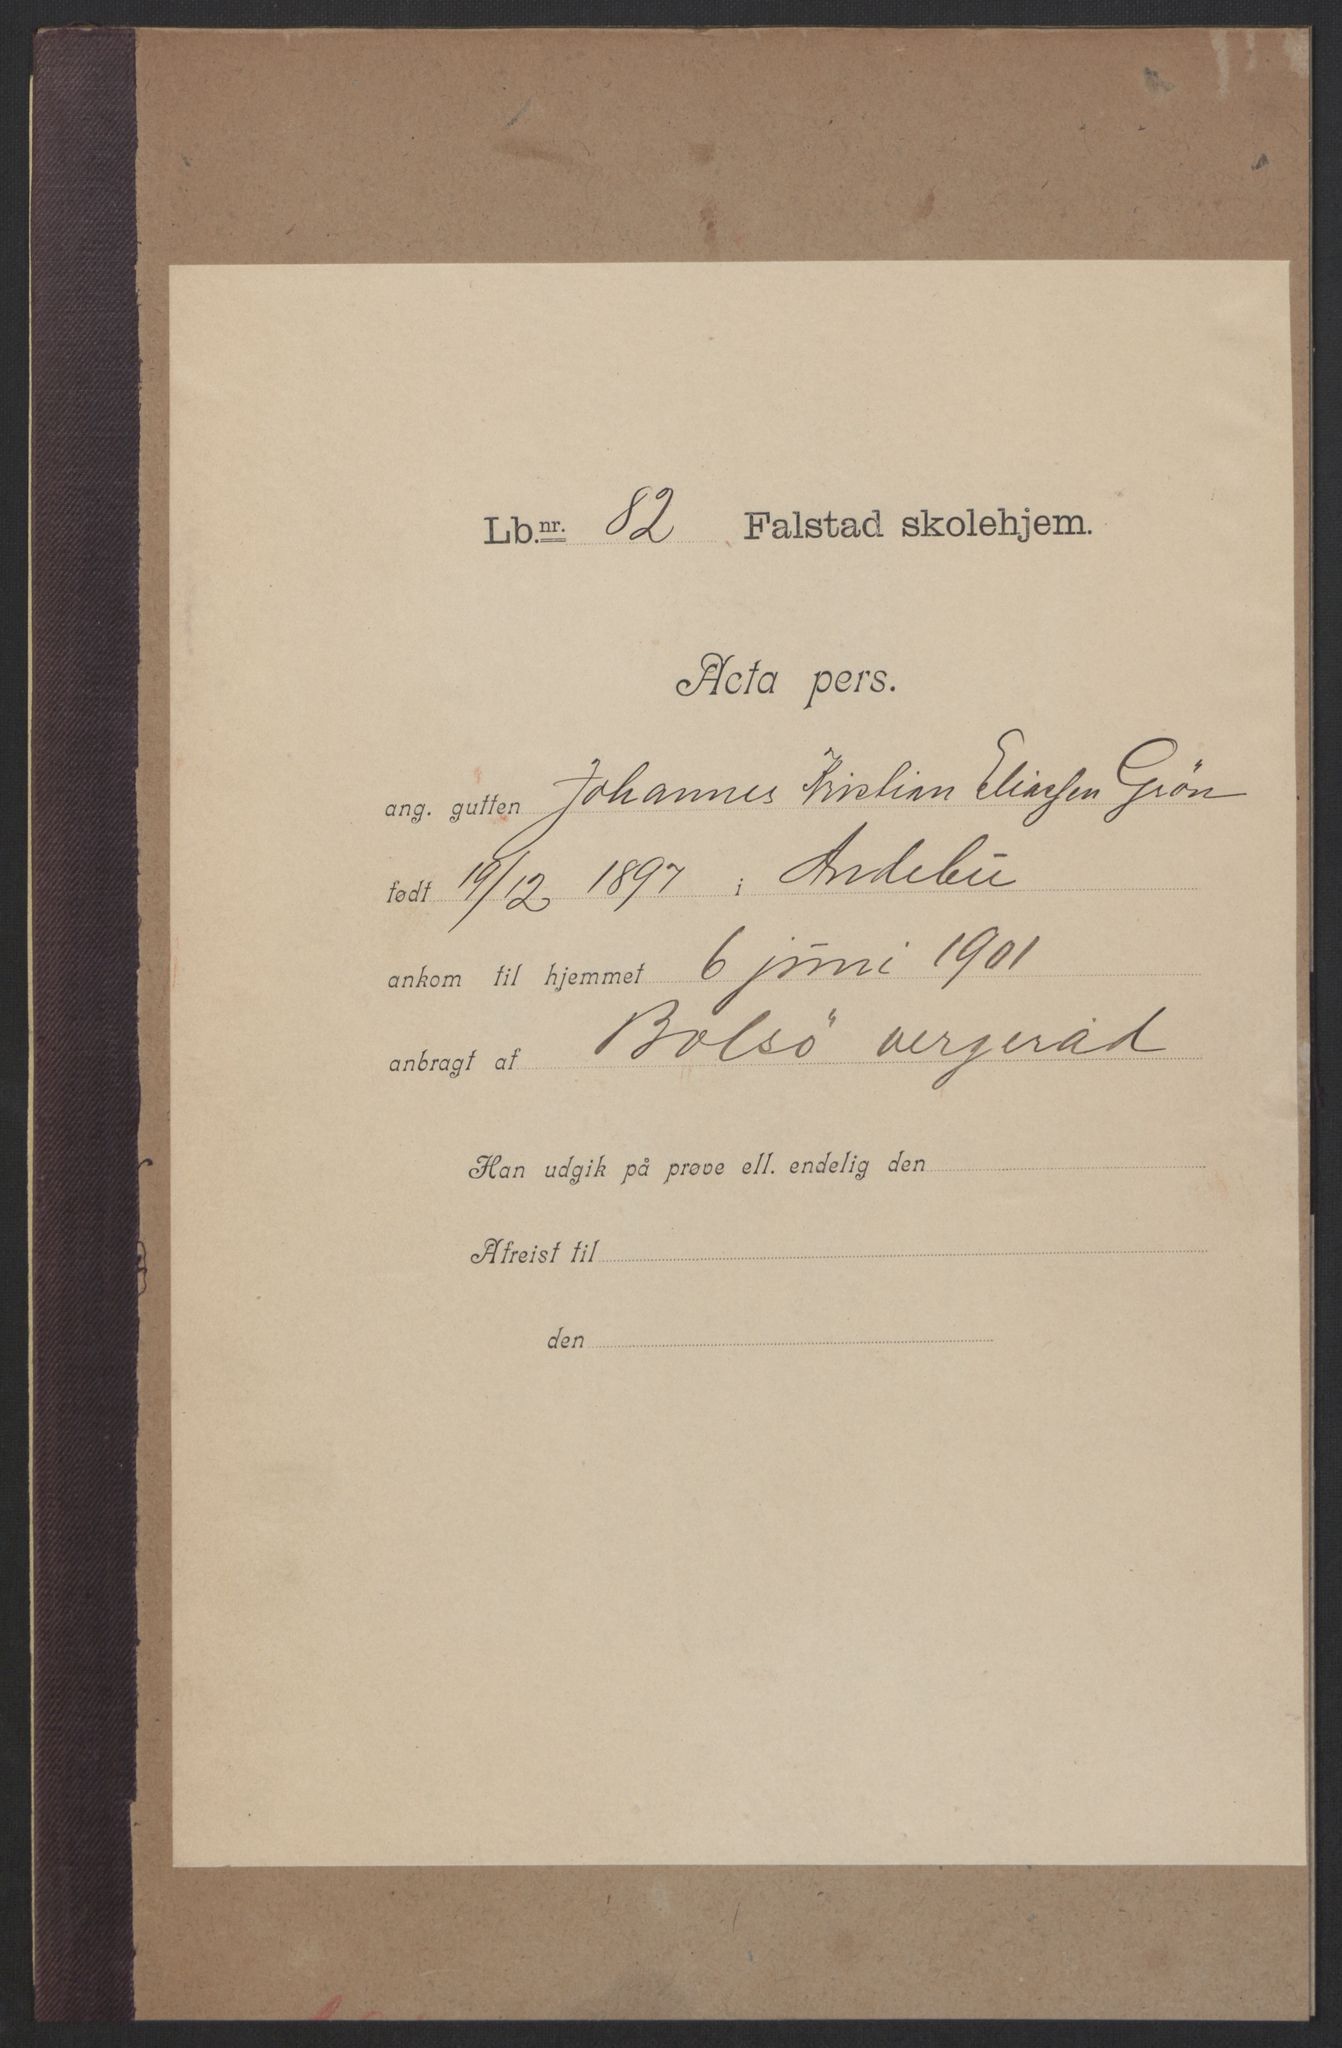 Lb.nr. 82 Falstad skolehjem.
Acta pers.
ang. gutten Johannes Kristian Eliassen Grön
født 19/12 1897 i Andebu
ankom til hjemmet 6 juni 1901
anbragt af Bolsö vergeråd
Han udgik på prøve ell. endelig den
Afreist til
den